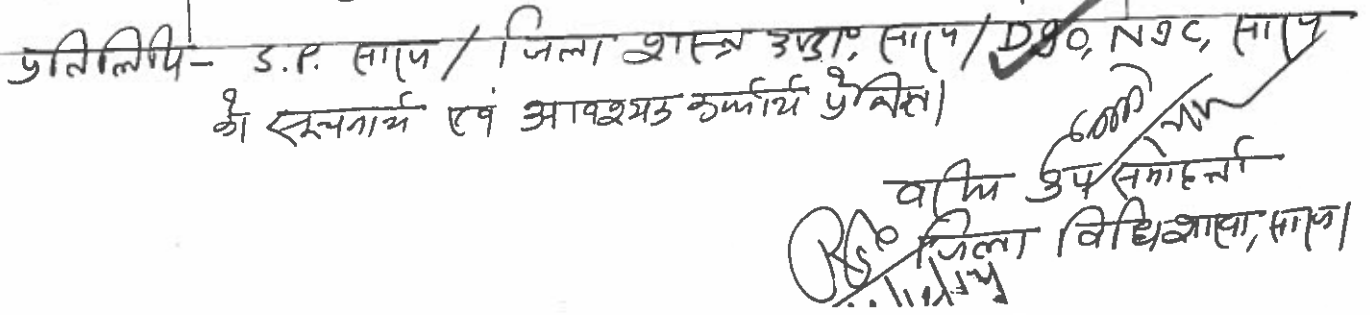 प्रतिलिपि- S.P. सारण / जिला शस्त्र दण्डा०, सारण / DIO, NIC, सारण
को सूचनार्थ एवं आवश्यक कार्यार्थ प्रेषित।
वरीय उप समाहर्त्ता
जिला विधि शाखा, सारण।